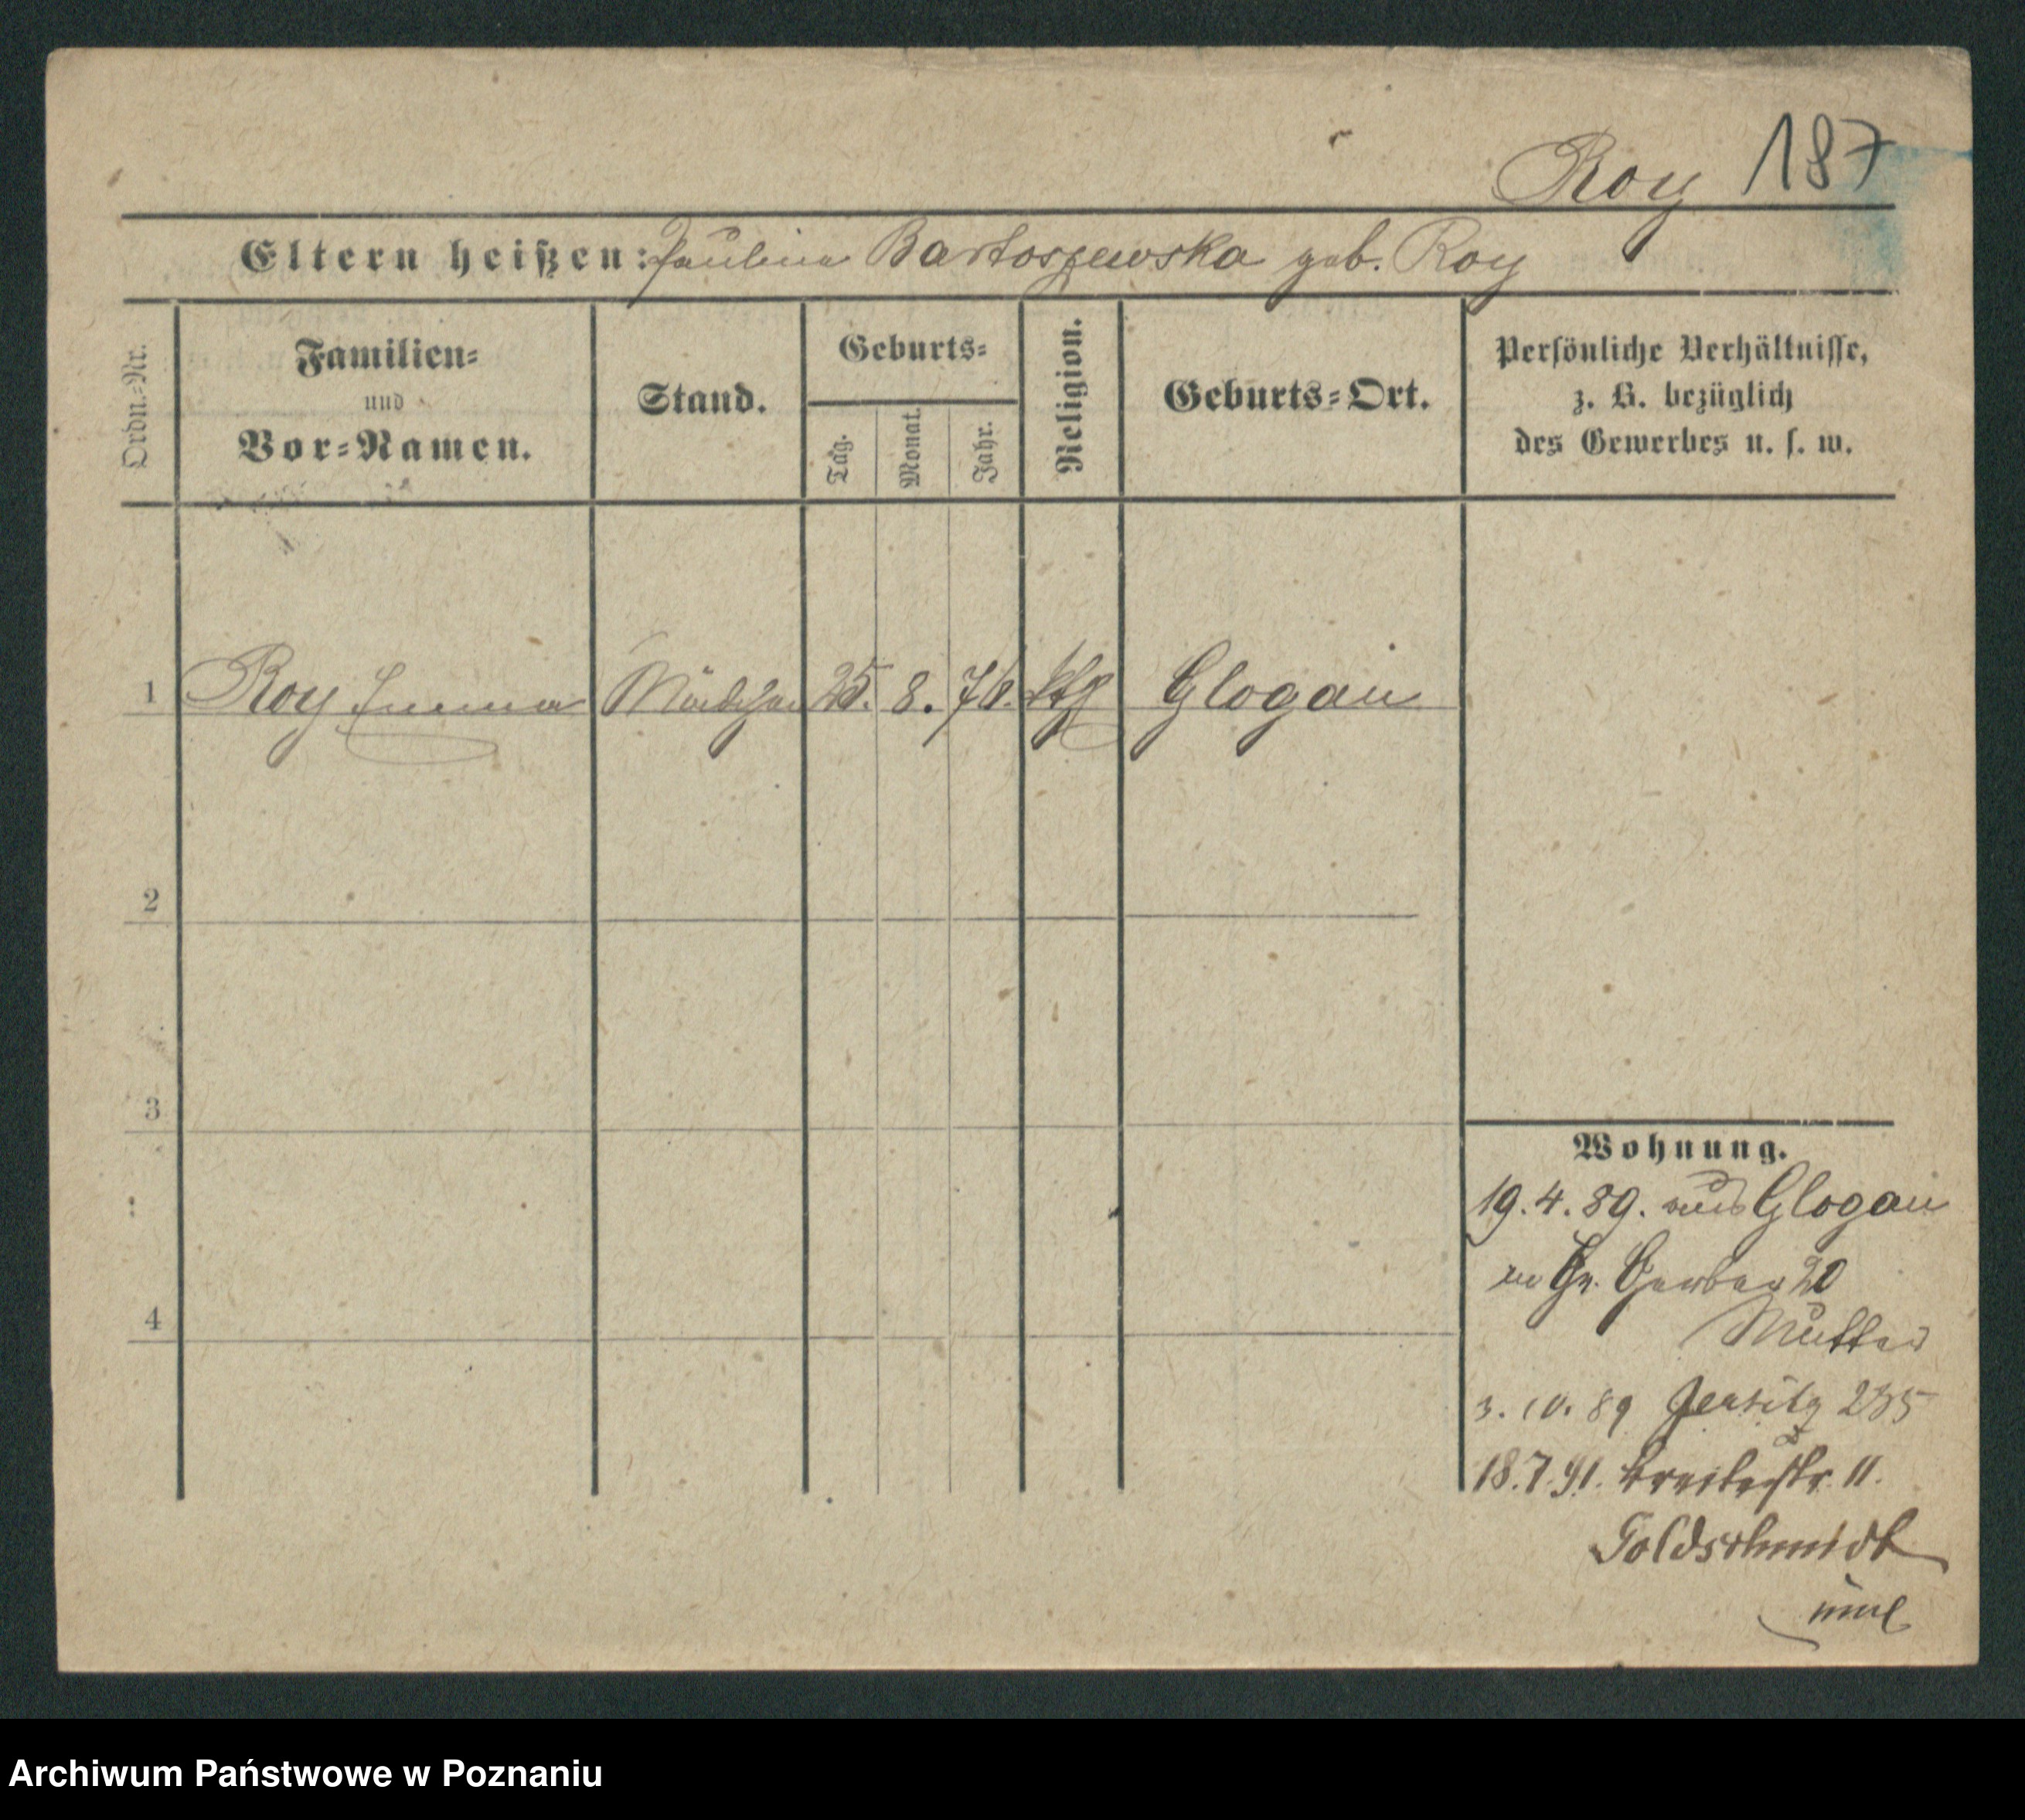 Roy 187
Eltern heißen: Paulina Bartoszewska geb. Roy
Ordn.-Nr.
Familien-
und
Vor-Namen.
Stand.
Geburts-
Tag.
Monat.
Jahr.
Religion.
Geburts-Ort.
Persönliche Verhältnisse,
z. B. bezüglich
des Gewerbes u. s. w.
1 Roy Emma Mädchen 25. 8. 76. kth Glogau
2
3
4
Wohnung.
19. 4. 89. aus Glogau
Gr. Gerber 20
Mutter
3. 10. 89 Jersitz 235
18. 7. 91. Breitestr. 11.
Goldschmidt
Archiwum Państwowe w Poznaniu